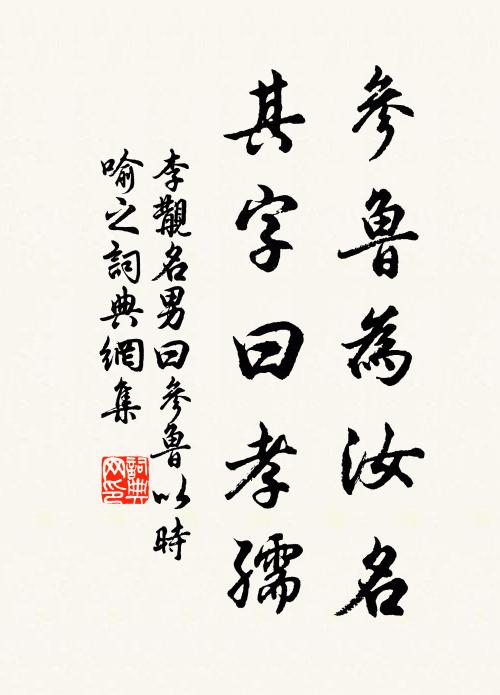 參魯為汝名
其字曰孝孺
李覯名男曰參魯以時
喻之詞典網集
詞典
网印